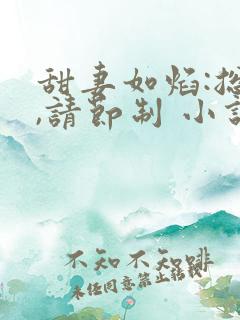 甜妻如焰:總
,請節制 小說
不知不知啡
未经同意禁止转载